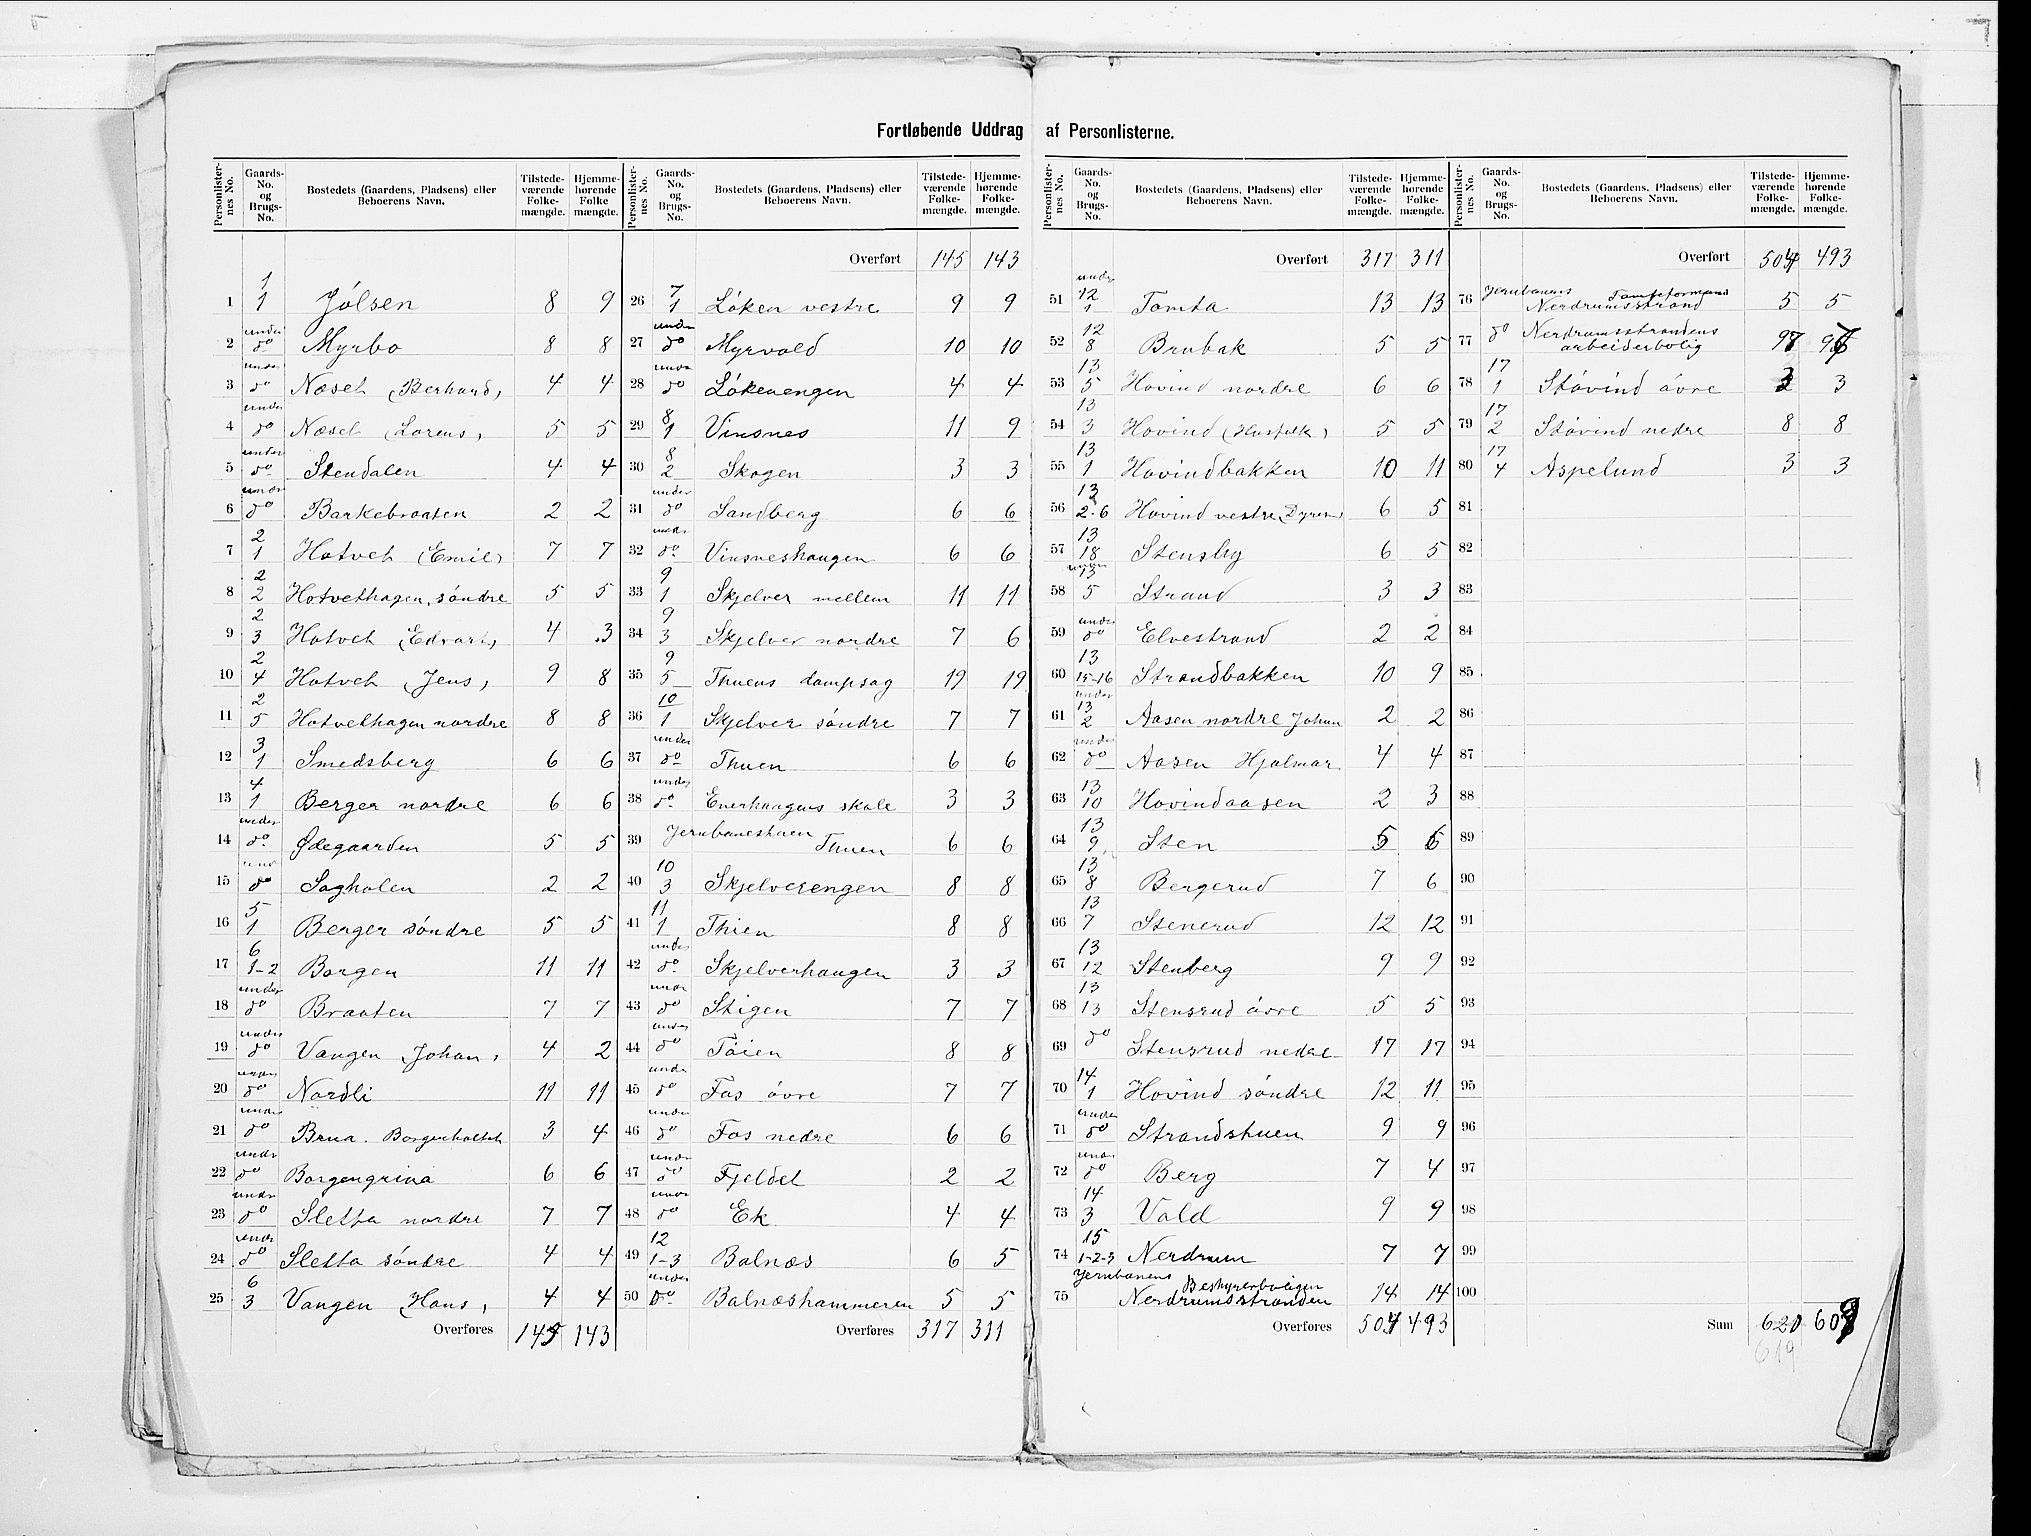 Fortløbende Uddrag af Personlisterne.
Personlister-nes No. Gaards-No. og Brugs-No. Bostedets (Gaardens, Pladsens) eller Beboerens Navn. Tilstede-værende Folke-mængde. Hjemme-hørende Folke-mængde.
1 1 1 Jølsen 8 9
2 under do Myrbo 8 8
3 under do Næset (Berhard) 4 4
4 under do Næset (Lorens) 5 5
5 under do Stendalen 4 4
6 under do Barkebraaten 2 2
7 2 1 Hotvet (Emil) 7 7
8 2 2 Hotvethagen, søndre 5 5
9 2 3 Hotvet (Edvart) 4 3
10 2 4 Hotvet (Jens) 9 8
11 2 5 Hotvethagen nordre 8 8
12 3 1 Smedsberg 6 6
13 4 1 Berger nordre 6 6
14 under do Ødegaarden 5 5
15 under do Sagholen 2 2
16 5 1 Berger søndre 5 5
17 6 1-2 Borgen 11 11
18 under do Braaten 7 7
19 under do Vangen (Johan) 4 2
20 under do Nordli 11 11
21 under do Brua. Borgenholtet 3 4
22 under do Borgengrina 6 6
23 under do Sletta nordre 7 7
24 under do Sletta søndre 4 4
25 6 3 Vangen (Hans) 4 4
Overføres 145 143
Personlister-nes No. Gaards-No. og Brugs-No. Bostedets (Gaardens, Pladsens) eller Beboerens Navn. Tilstede-værende Folke-mængde. Hjemme-hørende Folke-mængde.
Overført 145 143
26 7 1 Løken vestre 9 9
27 under do Myrvold 10 10
28 under do Løkenengen 4 4
29 8 1 Vinsnes 11 9
30 8 2 Skogen 3 3
31 under do Sandberg 6 6
32 under do Vinsneshaugen 6 6
33 9 1 Skjelver mellem 11 11
34 9 3 Skjelver nordre 7 6
35 9 5 Thuens dampsag 19 19
36 10 1 Skjelver søndre 7 7
37 under do Thuen 6 6
38 under do Enerhaugens skole 3 3
39 Jernbanestuen Thuen 6 6
40 10 3 Skjelverengen 8 8
41 11 1 Thien 8 8
42 under do Skjelverhaugen 3 3
43 under do Stigen 7 7
44 under do Tøien 8 8
45 under do Fos øvre 7 7
46 under do Fos nedre 6 6
47 under do Fjeldet 2 2
48 under do Ek 4 4
49 12 1-3 Balnæs 6 5
50 under do Balnæshammeren 5 5
Overføres 317 311
Personlister-nes No. Gaards-No. og Brugs-No. Bostedets (Gaardens, Pladsens) eller Beboerens Navn. Tilstede-værende Folke-mængde. Hjemme-hørende Folke-mængde.
Overført 317 311
51 under 12 1 Tomta 13 13
52 12 8 Brubak 5 5
53 13 5 Hovind nordre 6 6
54 13 3 Hovind (Husfolk) 5 5
55 13 1 Hovindbakken 10 11
56 13 2-6 Hovind vestre 6 5
57 13 18 Stensby 6 5
58 under 13 5 Strand 3 3
59 under do Elvestrand 2 2
60 13 15-16 Strandbakken 10 9
61 under 13 2 Aasen nordre Johan 2 2
62 under do Aasen Hjalmar 4 4
63 13 10 Hovindaasen 2 3
64 13 9 Sten 5 6
65 13 8 Bergerud 7 6
66 13 7 Stenerud 12 12
67 13 12 Stenberg 9 9
68 13 13 Stensrud øvre 5 5
69 do Stensrud nedre 17 17
70 14 1 Hovind søndre 12 11
71 under do Strandstuen 9 9
72 under do Berg 7 4
73 14 3 Vold 9 9
74 15 1-2-3 Nerdrum 7 7
75 Jernbanens Bestyrerboligen Nerdrumsstranden 14 14
Overføres 504 493
Personlister-nes No. Gaards-No. og Brugs-No. Bostedets (Gaardens, Pladsens) eller Beboerens Navn. Tilstede-værende Folke-mængde. Hjemme-hørende Folke-mængde.
Overført 504 493
76 Jernbanens Nerdrumsstrand 5 5
77 do Nerdrumsstrandens arbeiderbolig 97
78 17 1 Støvind øvre 3 3
79 17 2 Støvind nedre 8 8
80 17 4 Aspelund 3 3
81
82
83
84
85
86
87
88
89
90
91
92
93
94
95
96
97
98
99
100
Sum 620 609
619